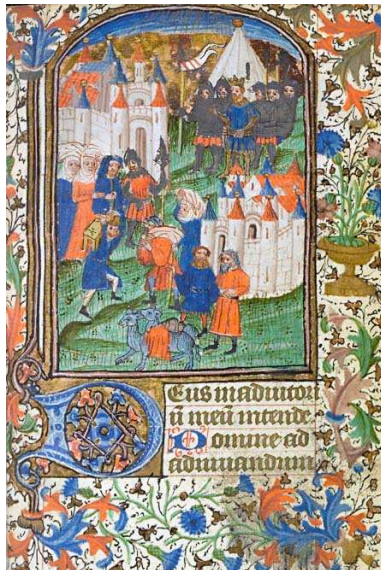 Deus in adiutori
ū meū intende
Domine ad
adiuuandum